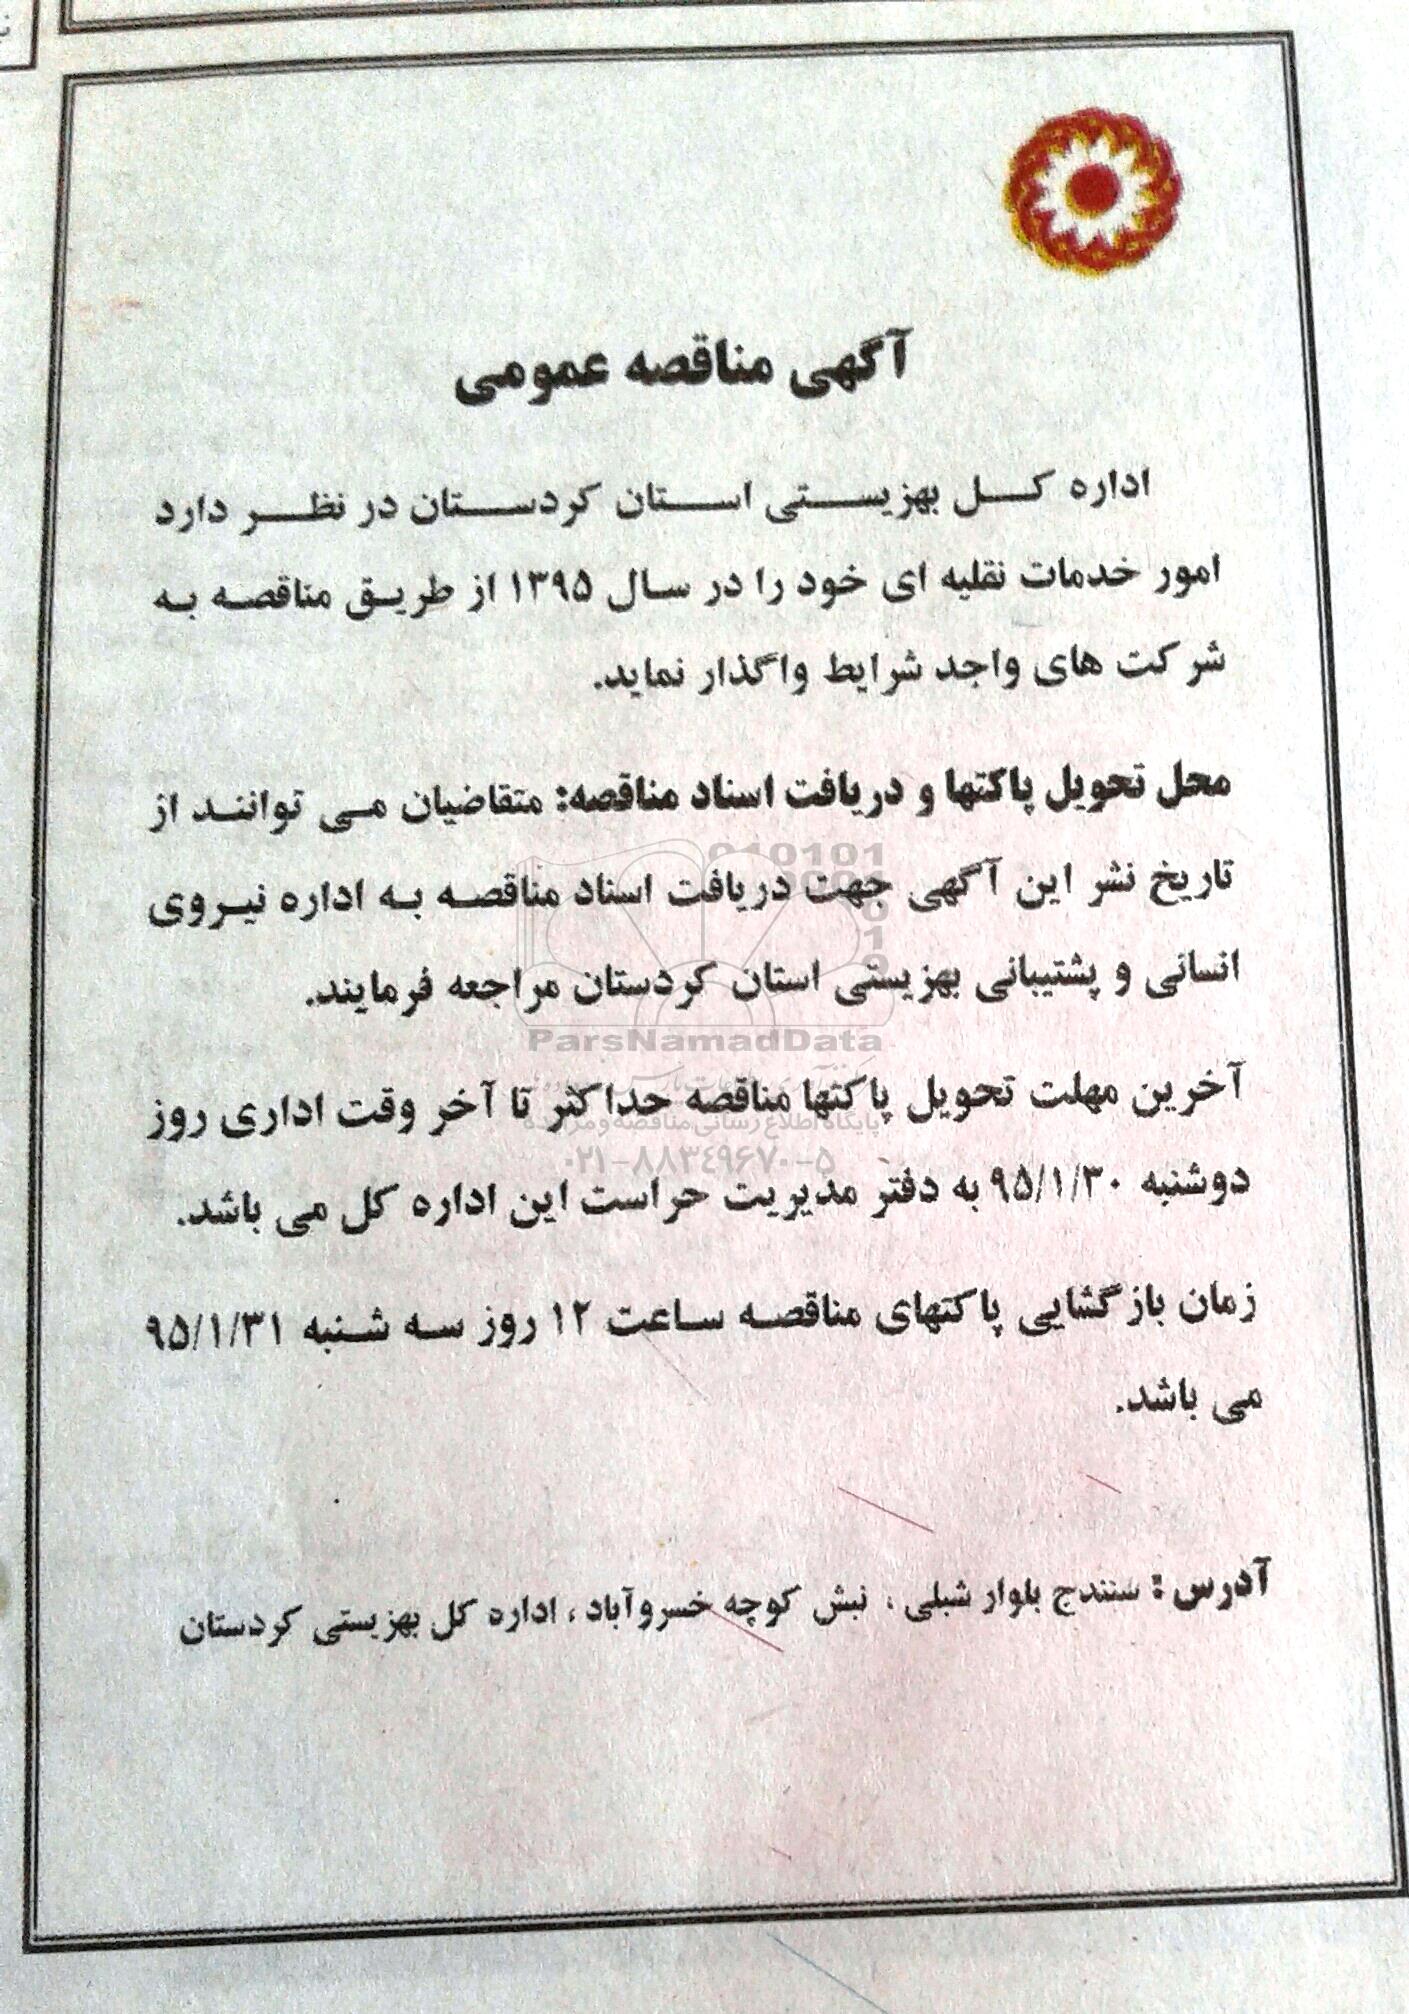 آگهی مناقصه عمومی
اداره کل بهزیستی استان کردستان در نظر دارد
امور خدمات نقلیه ای خود را در سال ۱۳۹۵ از طریق مناقصه به
شرکت های واجد شرایط واگذار نماید.
محل تحویل پاکتها و دریافت اسناد مناقصه: متقاضیان می توانند از
تاریخ نشر این آگهی جهت دریافت اسناد مناقصه به اداره نیروی
انسانی و پشتیبانی بهزیستی استان کردستان مراجعه فرمایند.
ParsNamadData
آخرین مهلت تحویل پاکتها مناقصه حداکثر تا آخر وقت اداری روز
پایگاه اطلاع رسانی مناقصه و مزایده
۰۲۱-۸۸۳۴۹۶۷۰-۵
دوشنبه ۹۵/۱/۳۰ به دفتر مدیریت حراست این اداره کل می باشد.
زمان بازگشایی پاکتهای مناقصه ساعت ۱۲ روز سه شنبه ۹۵/۱/۳۱
می باشد.
آدرس : سنندج بلوار شبلی ، نبش کوچه خسروآباد ، اداره کل بهزیستی کردستان